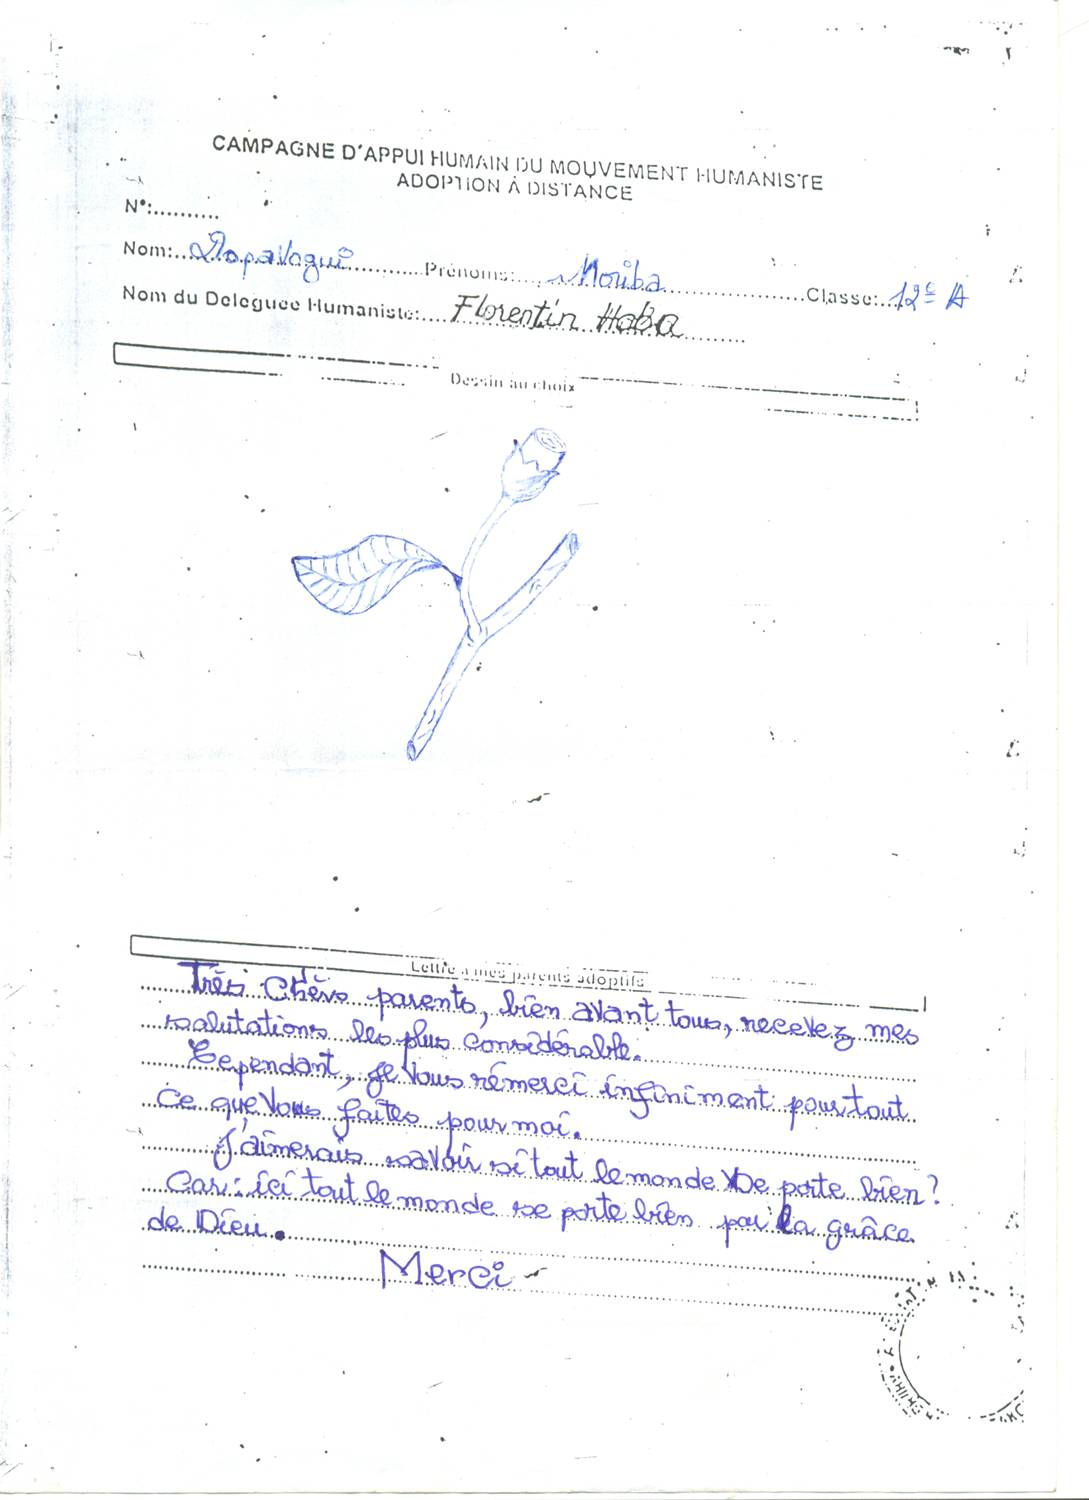 CAMPAGNE D'APPUI HUMAIN DU MOUVEMENT HUMANISTE
ADOPTION À DISTANCE
N°:..........
Nom:.. Dopavogui ............Prénoms:.... Moriba ....................Classe:.. 12e A
Nom du Deleguee Humaniste:.... Florentin Haba ..........
Dessin au choix
Lettre à mes parents adoptifs
Très Chèrs parents, bien avant tous, recevez mes
salutations les plus considérable.
Cependant, je vous rémerci infiniment pour tout
Ce que vous faites pour moi.
J'aimerais savoir si tout le monde se porte bien?
Car: ici tout le monde se porte bien par la grâce
de Dieu.
Merci